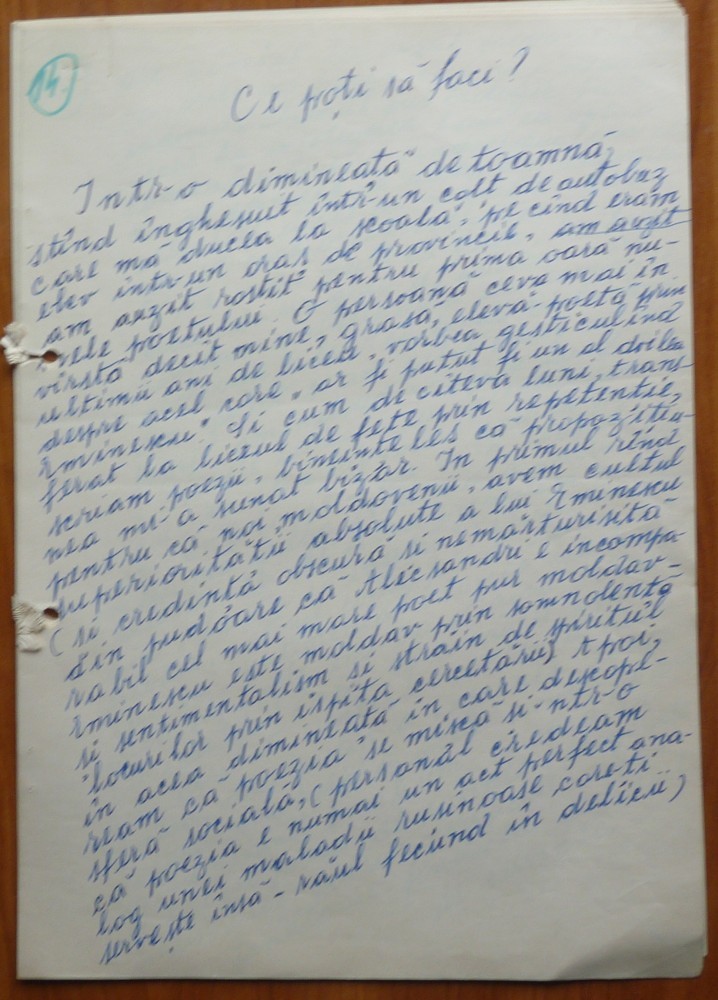 14.
Ce poți să faci?
Într-o dimineată de toamnă,
stînd înghesuit într-un colt de autobuz
care mă ducea la scoală, pe cînd eram
elev într-un oras de provincie, am auzit
am auzit rostit pentru prima oară nu-
mele poetului. O persoană ceva mai în
vîrstă decît mine, grasă, elevă-poetă prin
ultimii ani de liceu, vorbea gesticulînd
despre acel care "ar fi putut fi un al doilea
Eminescu". Si cum de cîteva luni, trans-
ferat la liceul de fete prin repetentie,
scriam poezii, bineinteles că propozitiu-
nea mi-a sunat bizar. În primul rînd
pentru că noi, moldovenii, avem cultul
superioritătii absolute a lui Eminescu
(si credintă obscură si nemărturisită
din pudoare că Alecsandri e incompa-
rabil cel mai mare poet pur moldav-
Eminescu este moldav prin somnolentă
si sentimentalism si străin de spiritul
locurilor prin ispita cercetării) Apoi,
în acea dimineată în care descope-
ream că poezia se miscă si-ntr-o
sferă socială, (personal credeam
că poezia e numai un act perfect ana-
log unei maladii rusinoase care-ti
servește însă - răul fecund în delicii)